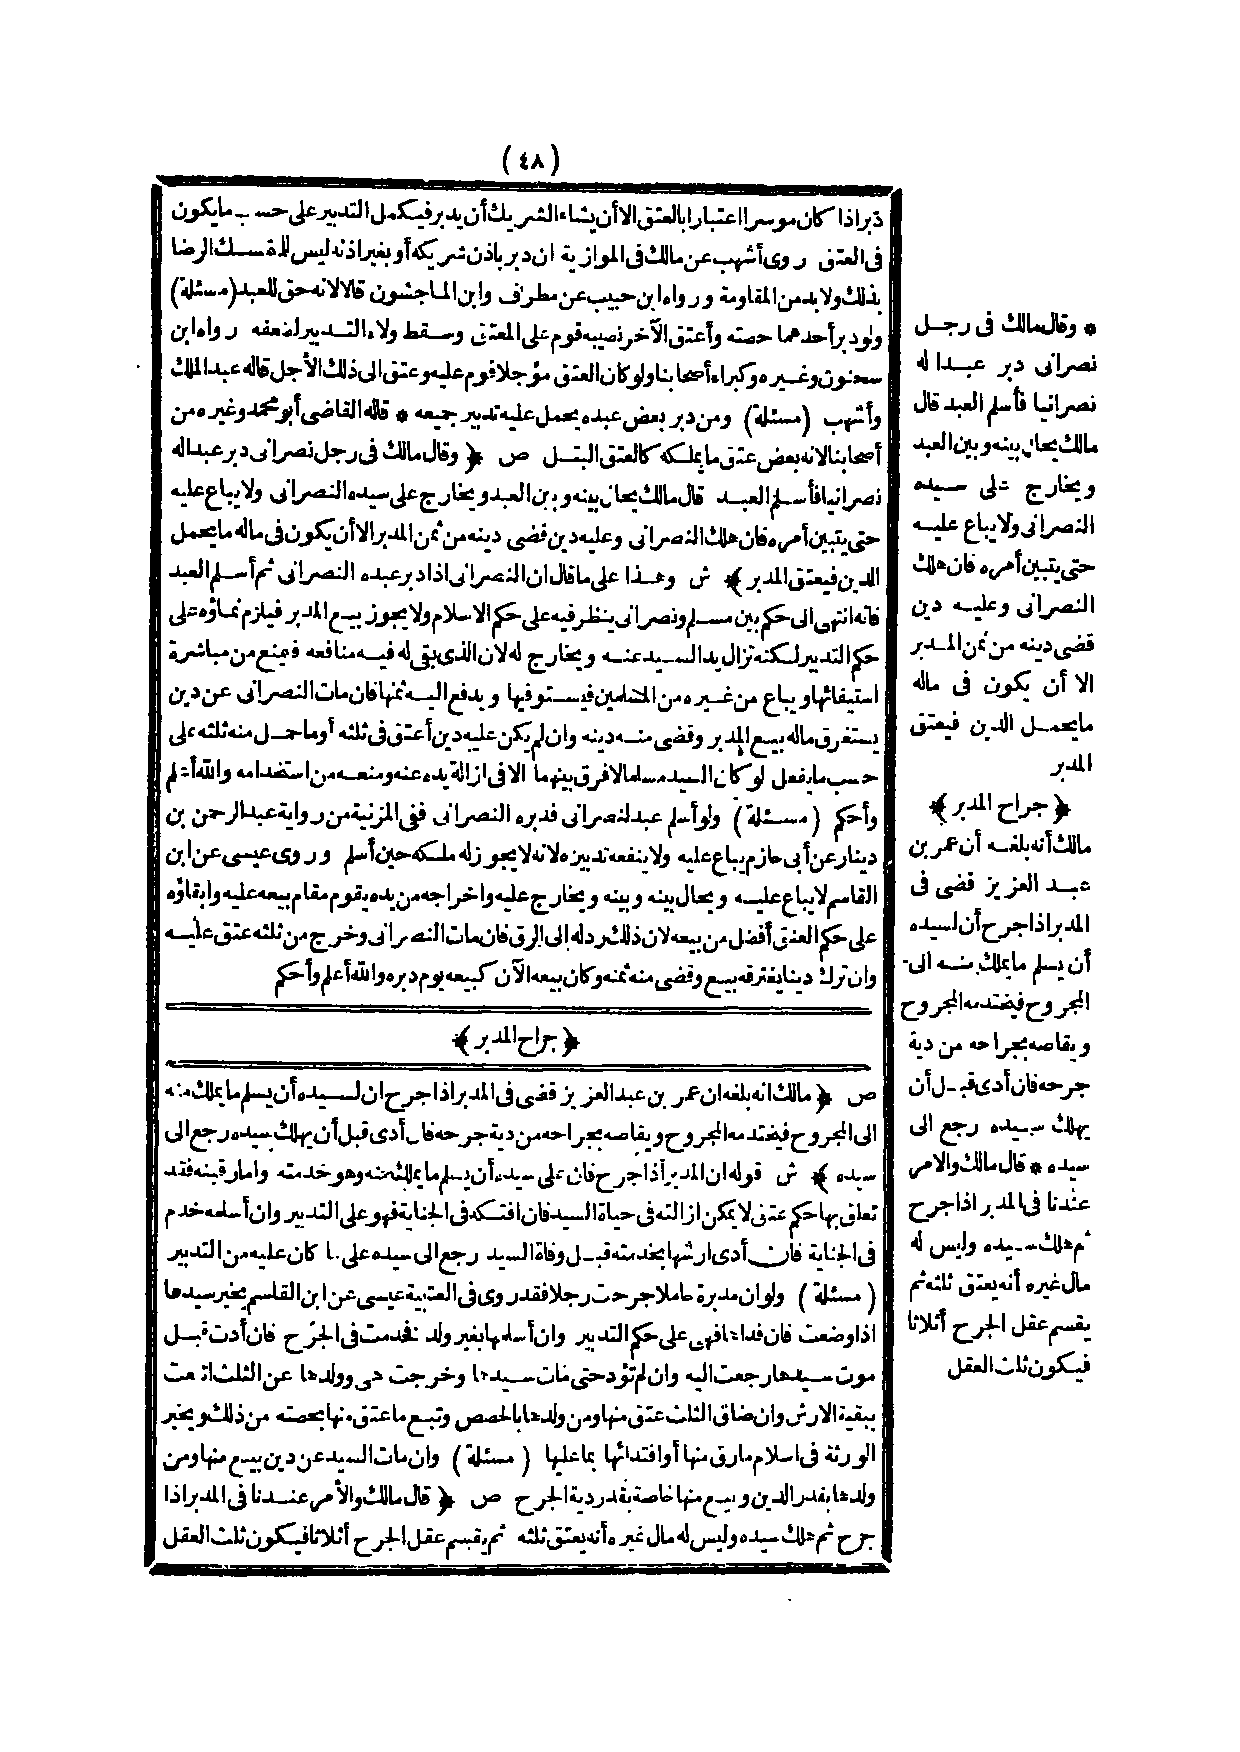 (٤٨)
دبر اذا كان موسرا اعتبارا بالعتق الا أن يشاء الشريك أن يدبر فيكمل التدبير على حسب ما يكون
فى العتق روى أشهب عن مالك فى الموازية ان دبر باذن شريكه أو بغير اذنه ليس للمتمسك الرضا
بذلك ولا بد من المقاومة ورواه ابن حبيب عن مطرف وابن الماجشون قالا لانه حق للعبد (مسئلة)
ولو دبر أحدهما حصته وأعتق الآخر نصيبه قوم على المعتق وسقط ولاء التدبير لضعفه رواه ابن
سحنون وغيره وكبراء أصحابنا ولو كان العتق مؤجلا قوم عليه وعتق الى ذلك الأجل قاله عبد الملك
وأشهب (مسئلة) ومن دبر بعض عبده يحمل عليه تدبير جميعه * قاله القاضى أبو محمد وغيره من
أصحابنا لانه بعض عتق ما يملكه كالعتق البتل ص ﴿ وقال مالك فى رجل نصرانى دبر عبدا له
نصرانيا فأسلم العبد قال مالك يحال بينه وبين العبد ويخارج على سيده النصرانى ولا يباع عليه
حتى يتبين أمره فان هلك النصرانى وعليه دين قضى دينه من ثمن المدبر الا أن يكون فى ماله ما يحمل
الدين فيعتق المدبر ﴾ ش وهذا على ما قال ان النصرانى اذا دبر عبده النصرانى ثم أسلم العبد
فانه انتهى الى حكم بين مسلم ونصرانى ينظر فيه على حكم الاسلام ولا يجوز بيع المدبر فيلزم بقاؤه على
حكم التدبير لكنه تزال يد السيد عنه ويخارج له لان الذى بقى له فيه منافعه فيمنع من مباشرة
استيفائها ويباع من غيره من المسلمين فيستوفيها ويدفع اليه ثمنها فان مات النصرانى عن دين
يستغرق ماله بيع المدبر وقضى منه دينه وان لم يكن عليه دين أعتق فى ثلثه أو ما حمل منه ثلثه على
حسب ما يفعل لو كان السيد مسلما لا فرق بينهما الا فى ازالة يده عنه ومنعه من استخدامه والله أعلم
وأحكم (مسئلة) ولو أسلم عبد لنصرانى فدبره النصرانى ففى المزنية من رواية عبد الرحمن بن
دينار عن أبى حازم يباع عليه ولا ينفعه تدبيره لانه لا يجوز له ملكه حين أسلم وروى عيسى عن ابن
القاسم لا يباع عليه ويحال بينه وبينه ويخارج عليه واخراجه من يده يقوم مقام بيعه عليه وابقاؤه
على حكم العتق أفضل من بيعه لان ذلك رد له الى الرق فان مات النصرانى وخرج من ثلثه عتق عليه
وان ترك دينا يغترقه بيع وقضى منه ثمنه وكان بيعه الآن كبيعه يوم دبره والله أعلم وأحكم
﴿ جراح المدبر ﴾
ص ﴿ مالك انه بلغه ان عمر بن عبد العزيز قضى فى المدبر اذا جرح ان لسيده أن يسلم ما يملك منه
الى المجروح فيختدمه المجروح ويقاصه بجراحه من دية جرحه فان أدى قبل أن يهلك سيده رجع الى
سيده ﴾ ش قوله ان المدبر اذا جرح فان على سيده أن يسلم ما يملك منه وهو خدمته وأما رقبته فقد
تعلق بها حكم عتق لا يمكن ازالته فى حياة السيد فان افتكه فى الجناية فهو على التدبير وان أسلمه خدم
فى الجناية فان أدى ارشها بخدمته قبل وفاة السيد رجع الى سيده على ما كان عليه من التدبير
(مسئلة) ولو ان مدبرة حاملا جرحت رجلا فقد روى فى العتبية عيسى عن ابن القاسم يخير سيدها
اذا وضعت فان فداها فهى على حكم التدبير وان أسلمها بغير ولد تخدمت فى الجرح فان أدت قبل
موت سيدها رجعت اليه وان لم تؤد حتى مات سيدها وخرجت هى وولدها عن الثلث اتبعت
ببقية الارش وان ضاق الثلث عتق منها ومن ولدها بالحصص وتبع ما عتق منها بحصته من ذلك ويخير
الورثة فى اسلام ما رق منها أو افتدائها بما عليها (مسئلة) وان مات السيد عن دين بيع منها ومن
ولدها بقدر الدين وبيع منها خاصة بقدر دية الجرح ص ﴿ قال مالك والأمر عندنا فى المدبر اذا
جرح ثم هلك سيده وليس له مال غيره أنه يعتق ثلثه ثم يقسم عقل الجرح أثلاثا فيكون ثلث العقل
* وقال مالك فى رجل
نصرانى دبر عبدا له
نصرانيا فأسلم العبد قال
مالك يحال بينه وبين العبد
ويخارج على سيده
النصرانى ولا يباع عليه
حتى يتبين أمره فان هلك
النصرانى وعليه دين
قضى دينه من ثمن المدبر
الا أن يكون فى ماله
ما يحمل الدين فيعتق
المدبر
﴿ جراح المدبر ﴾
مالك أنه بلغه أن عمر بن
عبد العزيز قضى فى
المدبر اذا جرح أن لسيده
أن يسلم ما يملك منه الى
المجروح فيختدمه المجروح
ويقاصه بجراحه من دية
جرحه فان أدى قبل أن
يهلك سيده رجع الى
سيده * قال مالك والامر
عندنا فى المدبر اذا جرح
ثم هلك سيده وليس له
مال غيره أنه يعتق ثلثه ثم
يقسم عقل الجرح أثلاثا
فيكون ثلث العقل